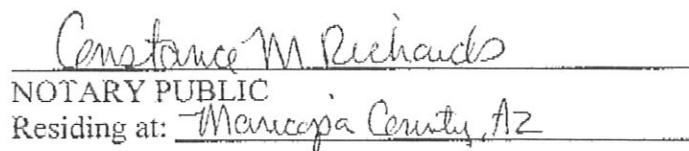 Constance M Richards
NOTARY PUBLIC
Residing at: Maricopa County, AZ